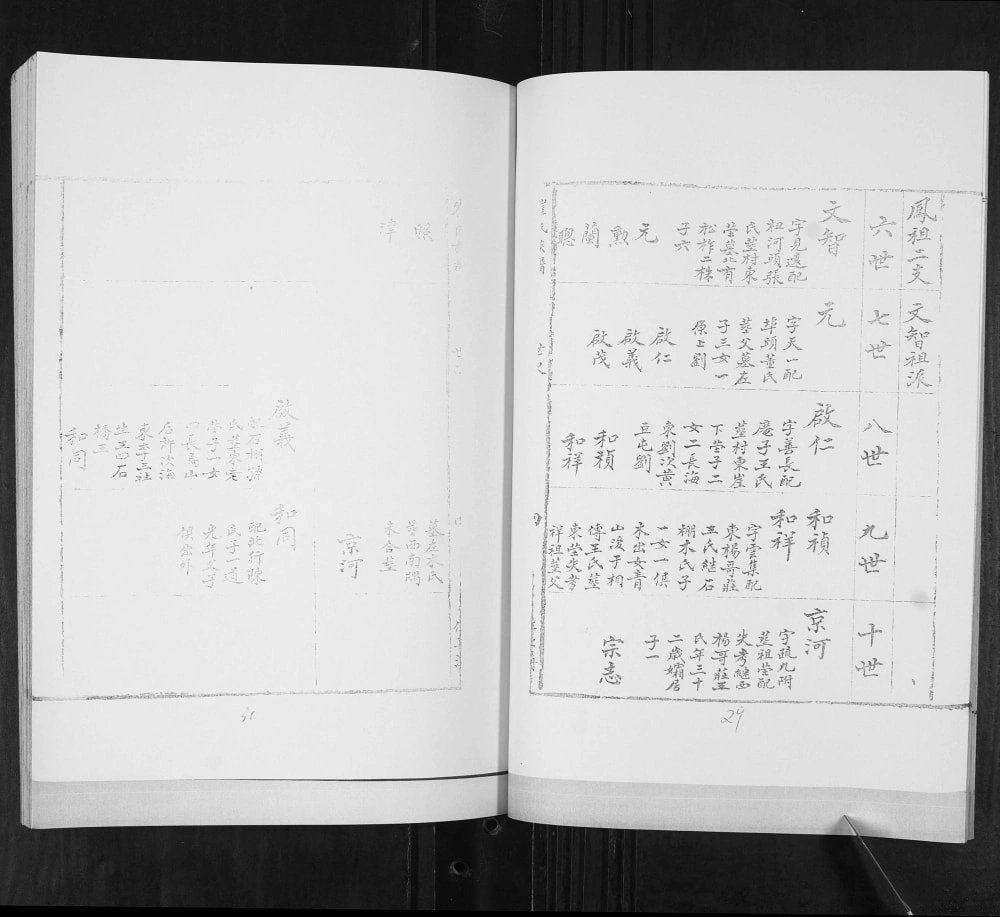 鳳祖二支
文智祖派
六世
七世
八世
九世
十世
文智
字見遠配
祖河頭張
氏葬村東
塋墓北有
松柞二株
子六
元
勲
蘭
聰
元
字天一配
埠頭董氏
葬父墓左
子三女一
原上劉
啟仁
啟義
啟茂
啟仁
字善長配
庵子王氏
葬村東崖
下塋子二
女二長海
東劉次黃
豆屯劉
和禎
和祥
和禎
和祥
字雲集配
東楊哥莊
王氏継石
棚木氏子
一女一俱
木出女青
山浚于桐
傳王氏葬
東塋失考
祥祖葬父
京河
字疏九附
葬祖塋配
失考継西
楊哥莊王
氏年三十
二歳孀居
子一
宗志
29
照
啟義
配石棚孫
塋子一女
四長馬山
東李三社
橋王
和同
和同
配北行陳
氏子一道
光年父子
俱出外
墓左木氏
葬西南隅
未合葬
京河